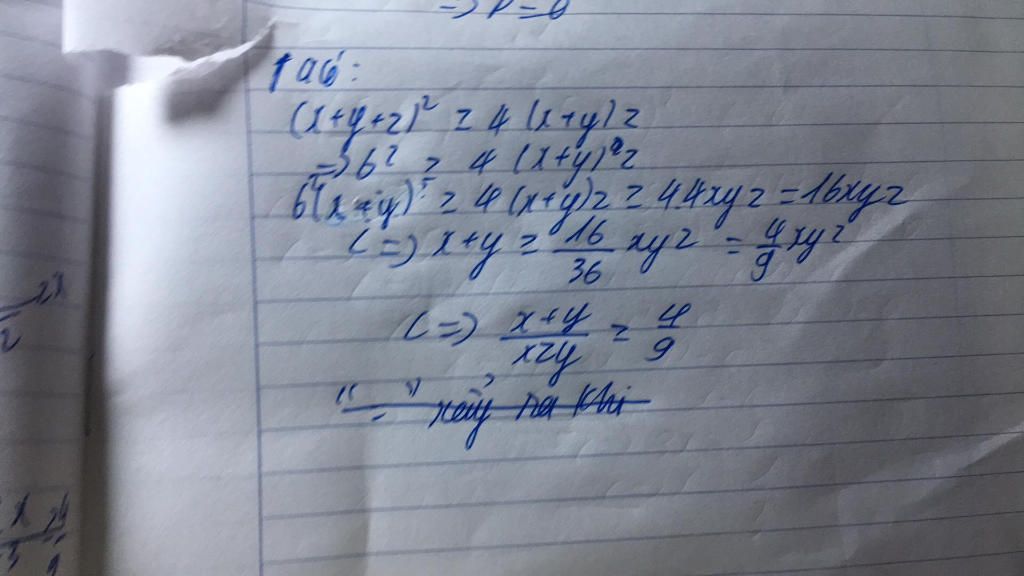 => P = 0
Ta có:
(x+y+z)² ≥ 4(x+y)z
=> 6² ≥ 4(x+y)z
6²(x+y) ≥ 4(x+y)²z ≥ 4.4xyz = 16xyz
<=> x+y ≥ 16/36 xyz = 4/9 xyz
<=> x+y/xzy ≥ 4/9
"=" xảy ra khi